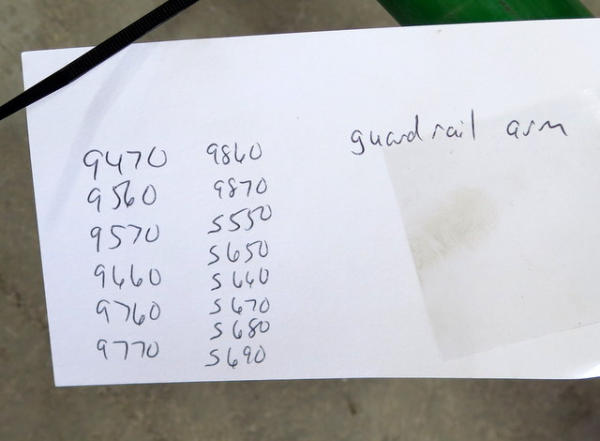 guardrail arm
9470
9560
9570
9660
9760
9770
9860
9870
S550
S650
S660
S670
S680
S690